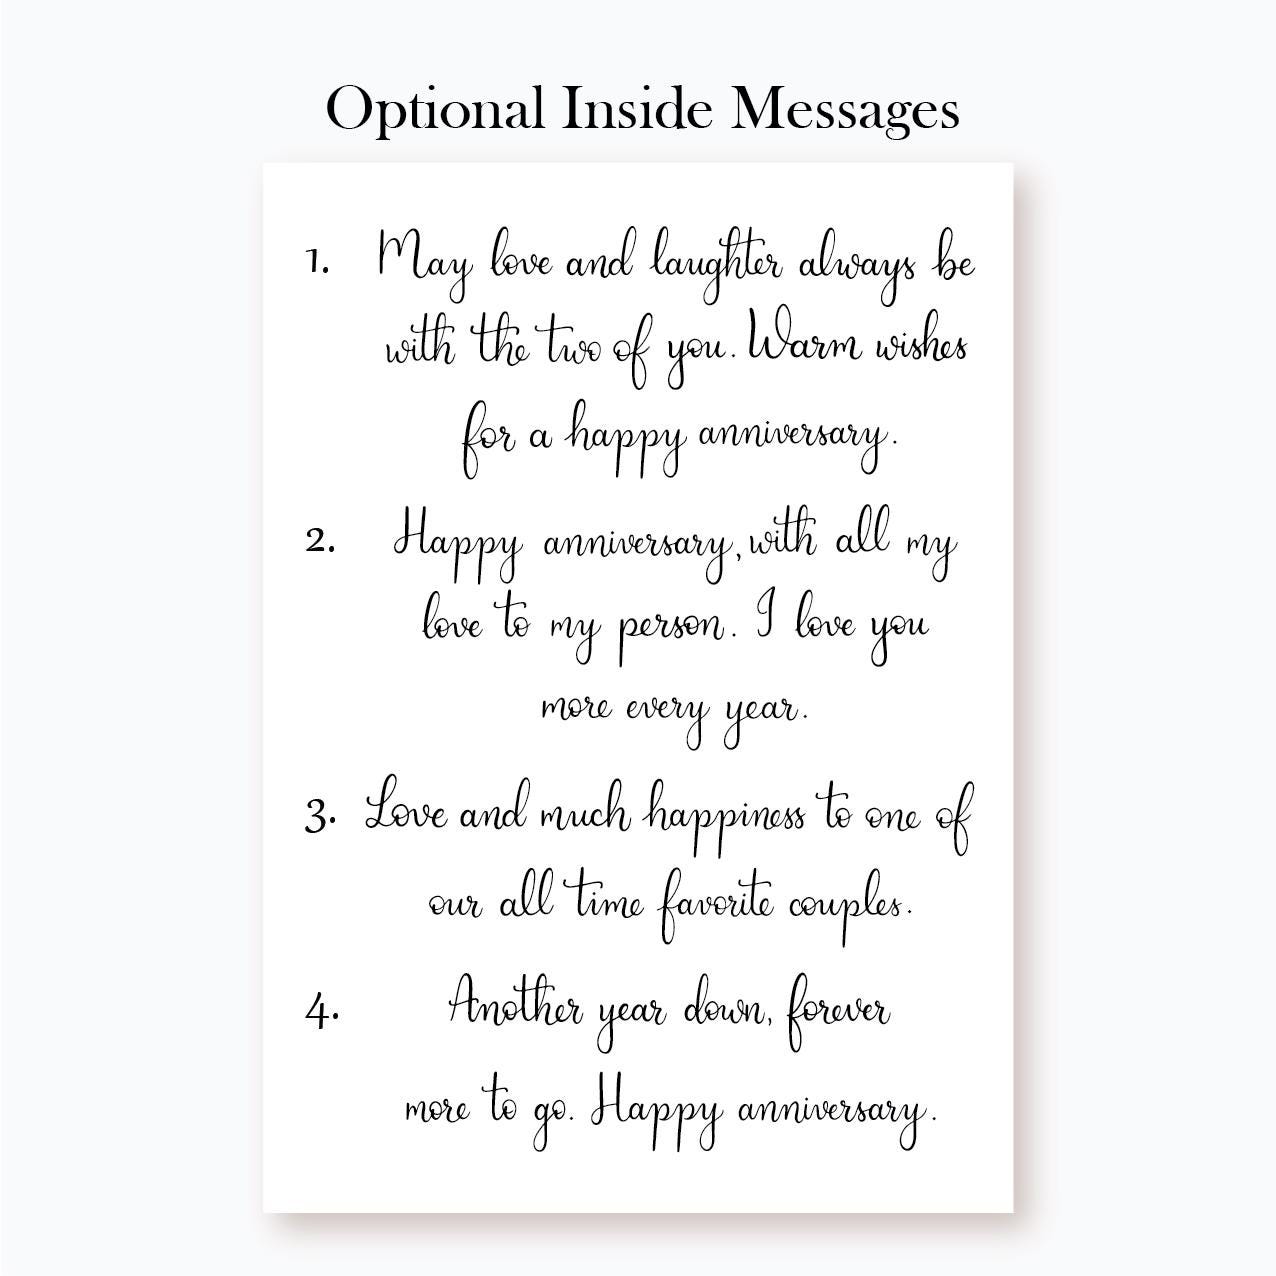 Optional Inside Messages
1. May love and laughter always be
with the two of you. Warm wishes
for a happy anniversary.
2. Happy anniversary, with all my
love to my person. I love you
more every year.
3. Love and much happiness to one of
our all time favorite couples.
4. Another year down, forever
more to go. Happy anniversary.